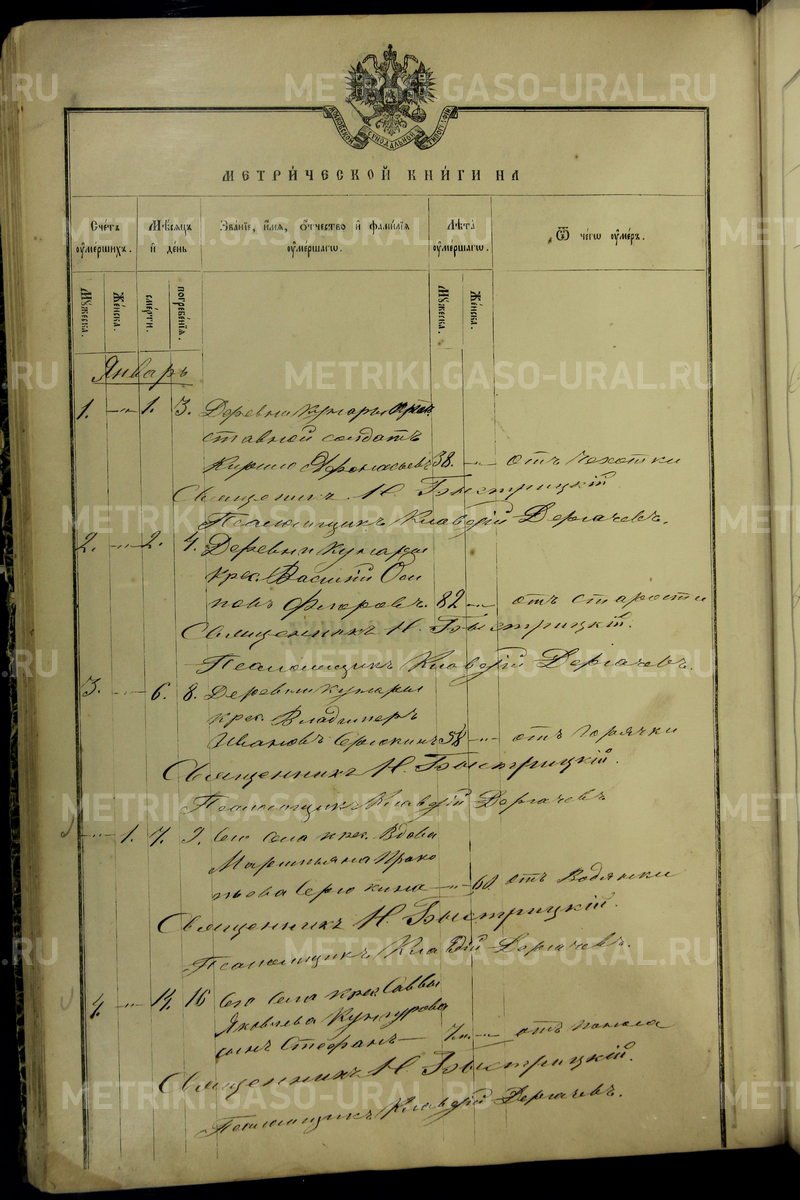 МОСКОВСКОЙ СѴНОДАЛЬНОЙ ТИПОГРАФІИ
МЕТРИ́ЧЕСКОЙ КНИ́ГИ НА
Сче́тъ ᲂу҆ме́ршихъ.
Мѣ́сѧцъ и҆ де́нь
Зва́нїе, и҆́мѧ, ѻ҆́тчество и҆ фами́лїѧ ᲂу҆ме́ршагѡ.
Лѣ́та ᲂу҆ме́ршагѡ.
Ѿ чегѡ̀ ᲂу҆́меръ.
Мꙋ́жеска.
Же́нска.
сме́рти.
погребе́нїѧ.
Мꙋ́жеска.
Же́нска.
Январь
1. -„- 1. 3. Деревни Кунгары
ставной солдатъ
Кирило Афонасьевъ 38. -„- отъ чахотки
Священникъ Н. Быстрицкій
Псаломщикъ Клавдій Дергачевъ.
2. -„- 2. 4. Деревни Кунгары
крес. Василій Оси
повъ Флоровъ. 82 -„- отъ старости
Священникъ Н. Быстрицкій.
Псаломщикъ Клавдій Дергачевъ.
3. -„- 6. 8. Деревни Кунгары
крес. Владимеръ
Ивановъ Серюкинъ -„- отъ горячки
Священникъ Н. Быстрицкій.
Псаломщикъ Клавдій Дергачевъ
-„- 1. 7. 9. Сего села крес. вдова
Маримьяна Проко
пьева Серюкина -„- 60 отъ водянки
Священникъ Н. Быстрицкій.
Псаломщикъ Клавдій Дергачевъ.
4. -„- 14. 16 Сего села крес. Саввы
Яковлева Кунгурова
сынъ Стефанъ -„- отъ поноса
Священникъ Н. Быстрицкій.
Псаломщикъ Клавдій Дергачевъ.
METRIKI.GASO-URAL.RU